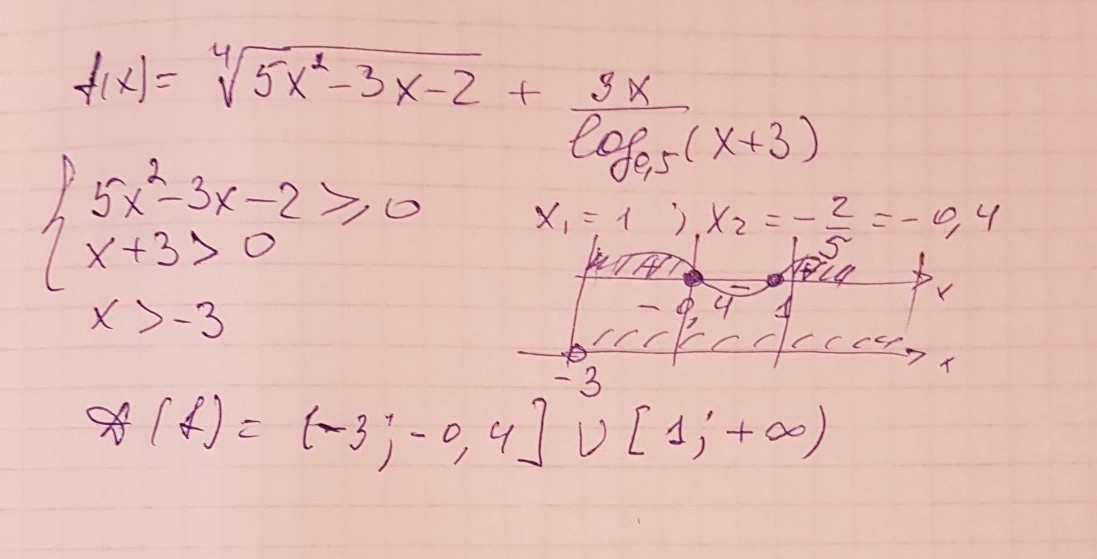 f(x) = ⁴√(5x² − 3x − 2) + 3x / log₀,₅(x+3)
{ 5x² − 3x − 2 ⩾ 0
x + 3 > 0
x₁ = 1 ; x₂ = − 2/5 = − 0,4
x > −3
− 0,4 − 1 x
−3 x
D(f) = (−3; −0,4] ∪ [1; +∞)